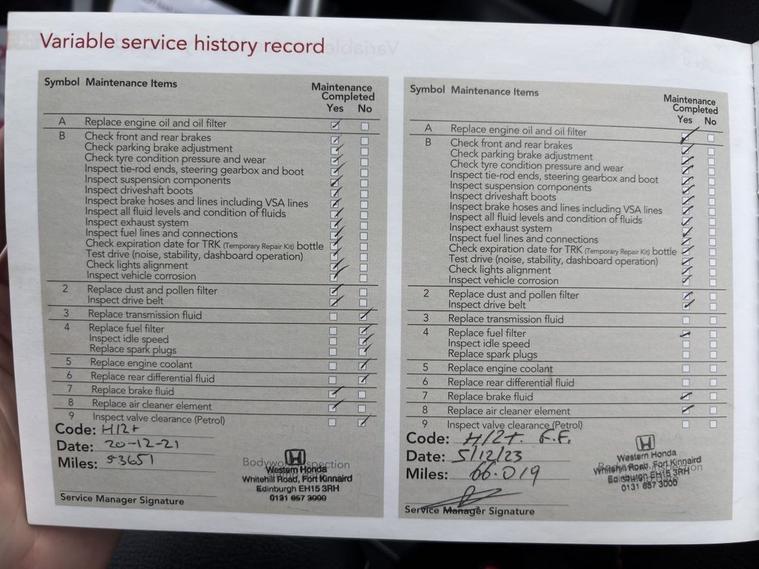 Variable service history record
Symbol Maintenance Items
Maintenance
Completed
Yes No
A Replace engine oil and oil filter
B Check front and rear brakes
Check parking brake adjustment
Check tyre condition pressure and wear
Inspect tie-rod ends, steering gearbox and boot
Inspect suspension components
Inspect driveshaft boots
Inspect brake hoses and lines including VSA lines
Inspect all fluid levels and condition of fluids
Inspect exhaust system
Inspect fuel lines and connections
Check expiration date for TRK (Temporary Repair Kit) bottle
Test drive (noise, stability, dashboard operation)
Check lights alignment
Inspect vehicle corrosion
2 Replace dust and pollen filter
Inspect drive belt
3 Replace transmission fluid
4 Replace fuel filter
Inspect idle speed
Replace spark plugs
5 Replace engine coolant
6 Replace rear differential fluid
7 Replace brake fluid
8 Replace air cleaner element
9 Inspect valve clearance (Petrol)
Code: H12+
Date: 20-12-21
Miles: 53651
Western Honda
Whitehill Road, Fort Kinnaird
Edinburgh EH15 3RH
0131 657 3000
Service Manager Signature
Symbol Maintenance Items
Maintenance
Completed
Yes No
A Replace engine oil and oil filter
B Check front and rear brakes
Check parking brake adjustment
Check tyre condition pressure and wear
Inspect tie-rod ends, steering gearbox and boot
Inspect suspension components
Inspect driveshaft boots
Inspect brake hoses and lines including VSA lines
Inspect all fluid levels and condition of fluids
Inspect exhaust system
Inspect fuel lines and connections
Check expiration date for TRK (Temporary Repair Kit) bottle
Test drive (noise, stability, dashboard operation)
Check lights alignment
Inspect vehicle corrosion
2 Replace dust and pollen filter
Inspect drive belt
3 Replace transmission fluid
4 Replace fuel filter
Inspect idle speed
Replace spark plugs
5 Replace engine coolant
6 Replace rear differential fluid
7 Replace brake fluid
8 Replace air cleaner element
9 Inspect valve clearance (Petrol)
Code: H/2+. F.F.
Date: 5/12/23
Miles: 66.019
Western Honda
Whitehill Road, Fort Kinnaird
Edinburgh EH15 3RH
0131 657 3000
Service Manager Signature